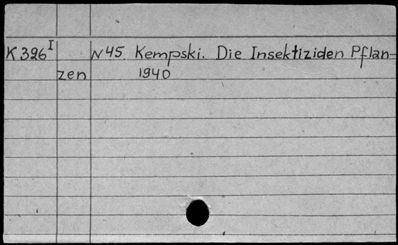 K 396 I N 45. Kempski. Die Insektiziden Pflan-
zen 1940